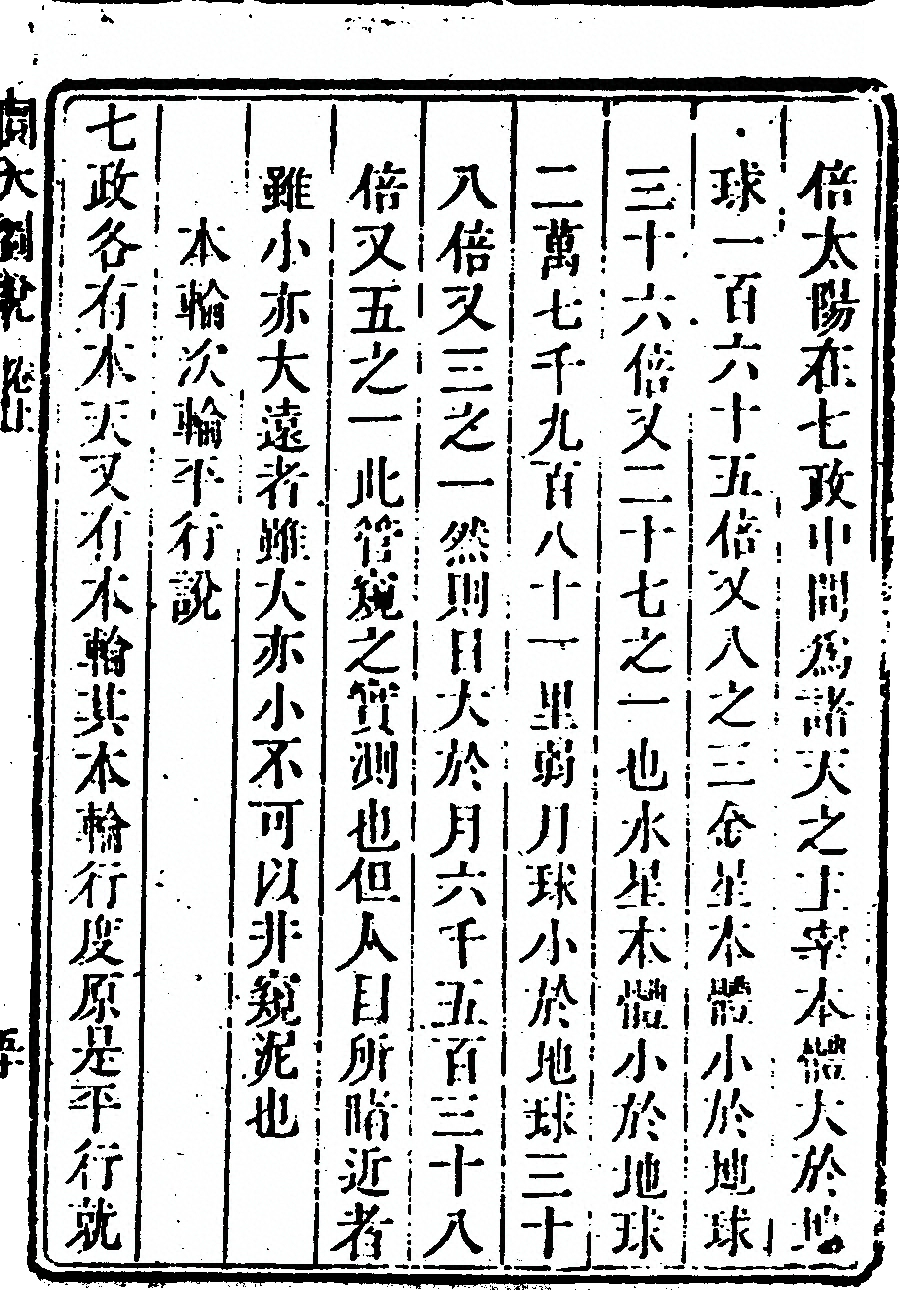 倍太陽在七政中間為諸天之主宰本體大於地
球一百六十五倍又八之三金星本體小於地球
三十六倍又二十七之一也水星本體小於地球
二萬七千九百八十一里弱月球小於地球三十
八倍又三之一然則日大於月六千五百三十八
倍又五之一此管窺之實測也但人目所睹近者
雖小亦大遠者雖大亦小不可以非窺泥也
本輪次輪平行說
七政各有本天又有本輪其本輪行度原是平行就